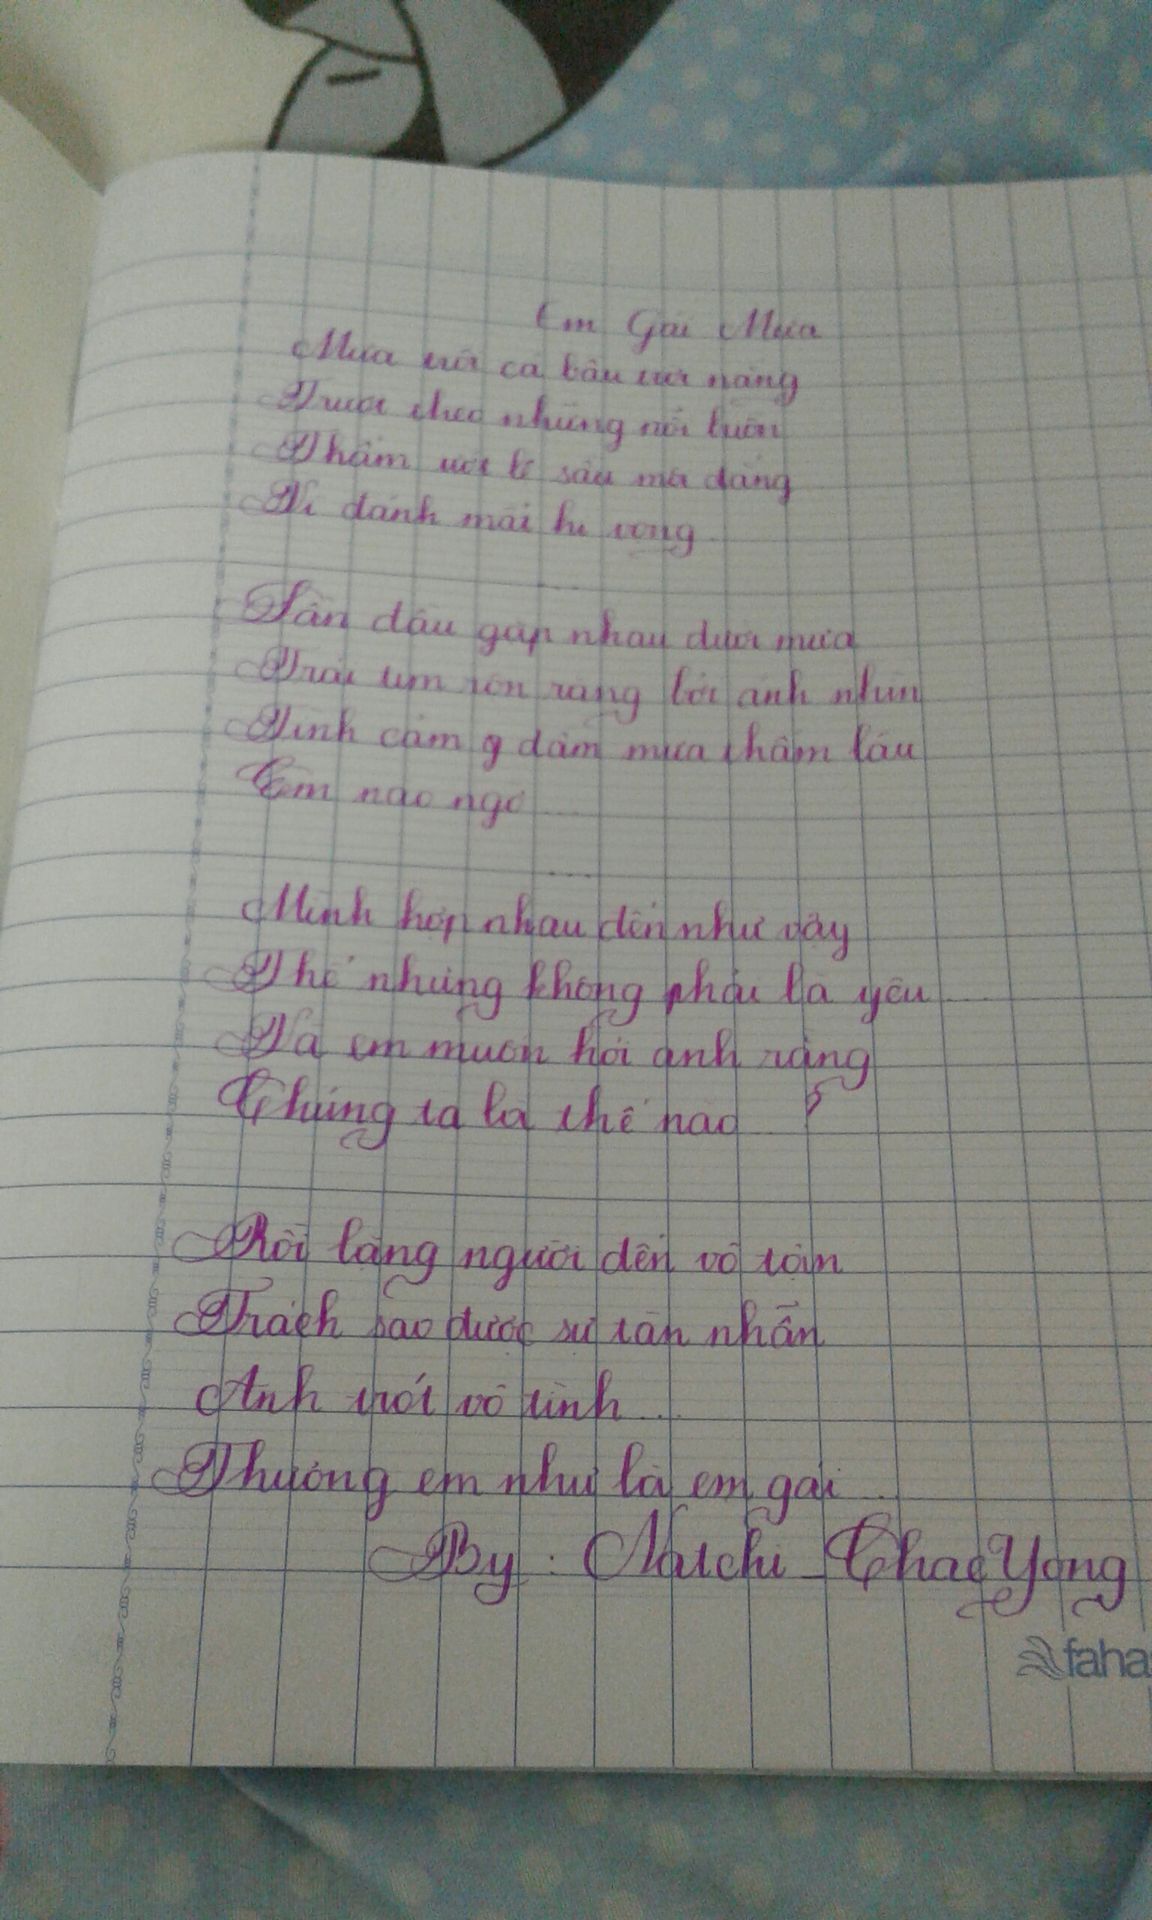 Em Gái Mưa
Mưa trôi cả bầu trời nắng
Trượt theo những nỗi buồn
Thấm ướt lệ sầu môi đắng
Vì đánh mất hi vọng
Lần đầu gặp nhau dưới mưa
Trái tim rộn ràng bởi ánh nhìn
Tình cảm dầm mưa thấm lâu
Em nào ngờ
...
Mình hợp nhau đến như vậy
Thế nhưng không phải là yêu
Và em muốn hỏi anh rằng
Chúng ta là thế nào ?
Rồi lặng người đến vô tận
Trách sao được sự tàn nhẫn
Anh trót vô tình ...
Thương em như là em gái ..
By : Michi _ ChaeYong
faha